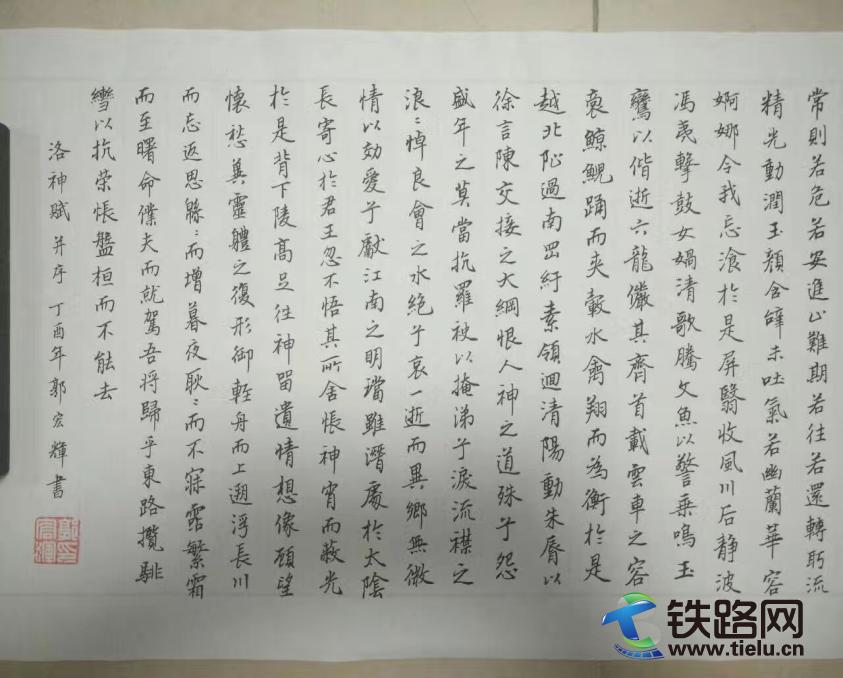 常則若危若安進止難期若往若還轉眄流
精光動潤玉顏含辭未吐氣若幽蘭華容
婀娜令我忘飡於是屏翳收風川后静波
馮夷擊鼓女媧清歌騰文魚以警乗鳴玉
鸞以偕逝六龍儼其齊首載雲車之容
裔鯨鯢踊而夾轂水禽翔而為衛於是
越北沚過南岡紆素領迴清陽動朱脣以
徐言陳交接之大綱恨人神之道殊兮怨
盛年之莫當抗羅袂以掩涕兮淚流襟之
浪浪悼良會之永絕兮哀一逝而異鄉無微
情以効愛兮獻江南之明璫雖潛處於太陰
長寄心於君王忽不悟其所舍悵神宵而蔽光
於是背下陵高足往神留遺情想像顧望
懷愁冀靈體之復形御輕舟而上遡浮長川
而忘返思緜緜而增暮夜耿耿而不寐霑繁霜
而至曙命僕夫而就駕吾將歸乎東路攬騑
轡以抗策悵盤桓而不能去
洛神賦 并序 丁酉年郭宏輝書
铁路网
www.tielu.cn